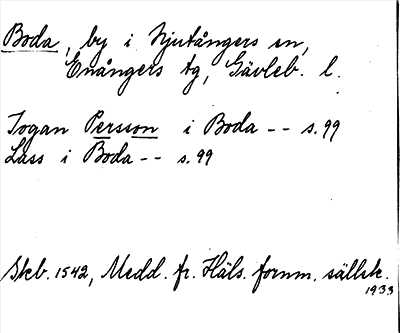 Boda, by i Njutångers sn,
Enångers tg, Gävleb. l.
Jogan Persson i Boda -- s. 99
Lass i Boda -- s. 99
Skb. 1542, Medd. fr. Häls. fornm. sällsk.
1933